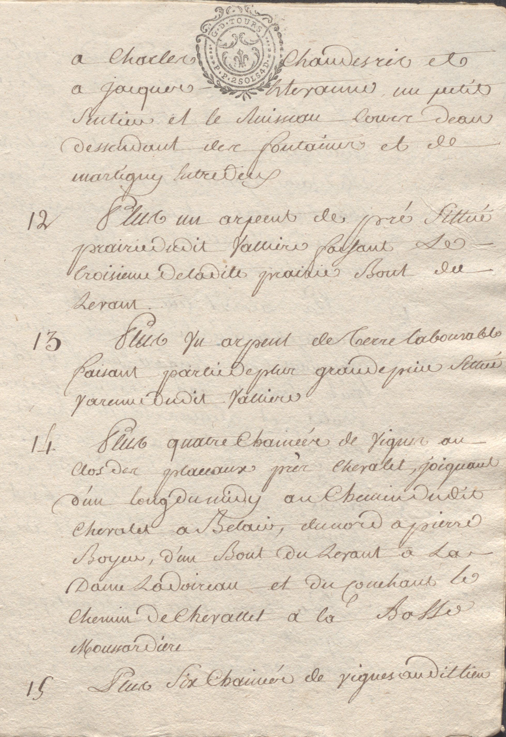 G.D. TOURS
P.P. 2 SOLS 4 D.
a Charles Chandesris et
a jacques un petit
Sentier et le Ruisseau Cours deau
dessendant des fontaines et de
martigny Entredeux
12 Plus un arpent de pré Sittué
prairie dudit Valliere faisant Le
Croisieme de ladite prairie Bout du
Levant
13 Plus Un arpent de Terre labourable
faisant partie de plus grande piece Sittué
Varenne dudit Valliere
14 Plus quatre Chainées de Vignes au
Clos des placeaux près Chevalet, joignant
d'un long du midy au Chemin dudit
Chevalet a Belair, du nord a pierre
Boyer, d'un Bout du Levant à La
Dame Ladoireau et du Couchant le
Chemin de Chevallet à la Basse
Moussardiere
15 Plus Six Chainées de vignes audit lieu